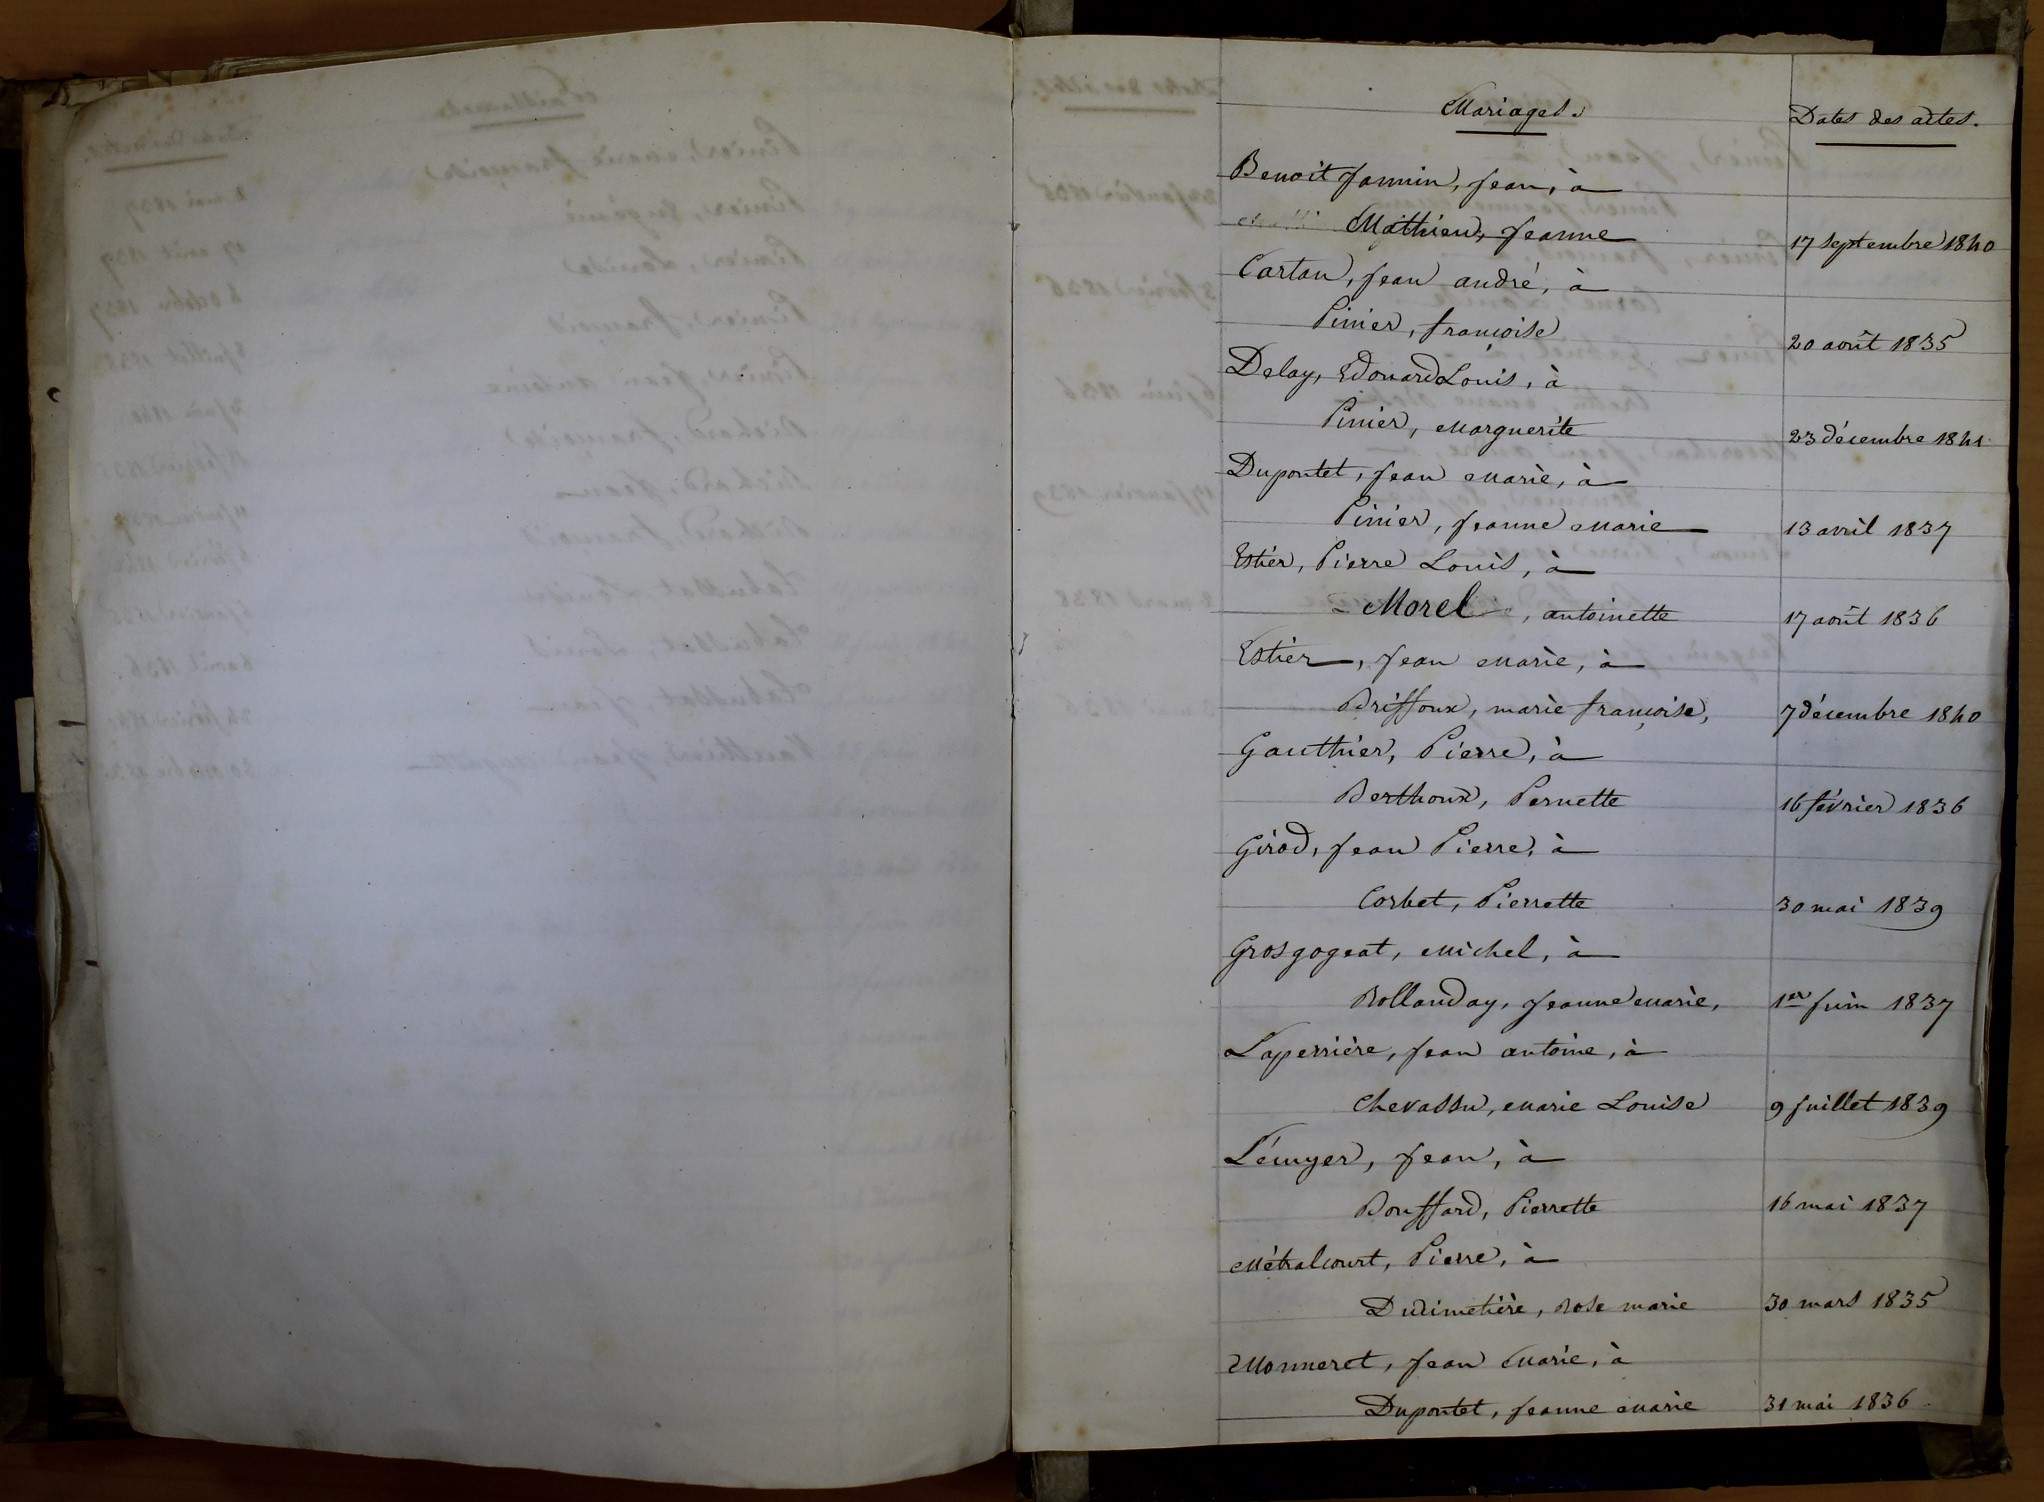 Mariages.
Dates des actes.
Benoit Jannin, Jean, à
Mathieu, Jeanne 17 septembre 1840
Cartan, Jean andré, à
Pinier, françoise 20 août 1835
Delay, Edouard Louis, à
Pinier, Marguerite 23 décembre 1841
Dupontet, Jean Marie, à
Pinier, Jeanne Marie 13 avril 1837
Estier, Pierre Louis, à
Morel, antoinette 17 août 1836
Estier, Jean Marie, à
Briffoux, marie françoise, 7 décembre 1840
Gauthier, Pierre, à
Berthoux, Pernette 16 février 1836
Girod, Jean Pierre, à
Corbet, Pierrette 30 mai 1839
Grosgogeat, Michel, à
Rollanday, Jeanne Marie, 1er Juin 1837
Laperrière, Jean antoine, à
Chevassu, Marie Louise 9 Juillet 1839
L'écuyer, Jean, à
Bouffard, Pierrette 16 mai 1837
Métralcourt, Pierre, à
Dudimetière, Rose marie 30 mars 1835
Monneret, Jean Marie, à
Dupontet, Jeanne Marie 31 mai 1836